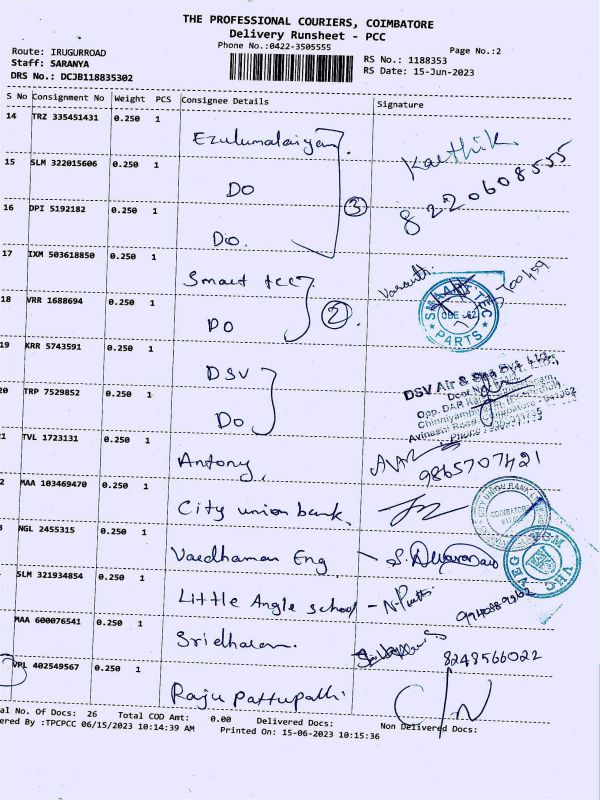 THE PROFESSIONAL COURIERS, COIMBATORE
Delivery Runsheet - PCC
Phone No.:0422-3505555
Page No.:2
Route: IRUGURROAD
Staff: SARANYA
DRS No.: DCJB118835302
RS No.: 1188353
RS Date: 15-Jun-2023
S No Consignment No Weight PCS Consignee Details Signature
14 TRZ 335451431 0.250 1 Ezulumalaiyan. Karthik
8220608555
15 SLM 322015606 0.250 1 DO
③
16 DPI 5192182 0.250 1 Do.
17 IXM 503618850 0.250 1 Smart tec
SMAART TEC
CBE -62
PARTS
18 VRR 1688694 0.250 1 DO
②
19 KRR 5743591 0.250 1 DSV
DSV Air & Sea Pvt. Ltd.,
Opp. DAR
Avinashi Road
20 TRP 7529852 0.250 1 Do
21 TVL 1723131 0.250 1 Antony,
9865707421
2 MAA 103469470 0.250 1 City union bank.
CITY UNION BANK
COIMBATORE
3 NGL 2455315 0.250 1 Vaedhaman Eng
SLM 321934854 0.250 1 Little Angle school
MAA 600076541 0.250 1 Sridharan.
8248566022
VPL 402549567 0.250 1 Raju pattupalli
C/N
al No. Of Docs: 26 Total COD Amt: 0.00 Delivered Docs: Non Delivered Docs:
ered By :TPCPCC 06/15/2023 10:14:39 AM Printed On: 15-06-2023 10:15:36